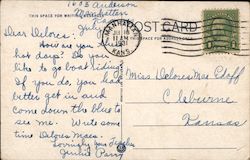 1608 Anderson
Manhattan
July
THIS SPACE FOR WRITING
POST CARD
THIS SPACE FOR ADDRESS ONLY
MANHATTAN
JUL 18
11 AM
KANS.
Dear Delores:
How are you these
hot days? Do you
like to go boat riding?
If you do, you had
better get in and
come down the blue to
see me. Write some
time Delores Mae.
Lovingly your
Miss Delores Mae
Cleburne
Kansas